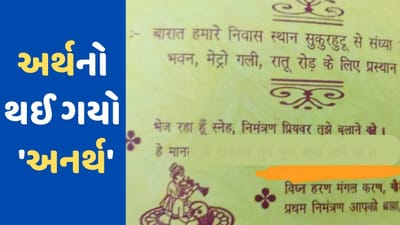 અર્થનો
થઈ ગયો
'અનર્થ'
:- बारात हमारे निवास स्थान सुकुरहुटू से संध्या
भवन, मेट्रो गली, रातू रोड़ के लिए प्रस्थान
भेज रहा हूँ स्नेह, निमंत्रण प्रियवर तुझे बुलाने को।
हे मानस के
विघ्न हरण मंगल करण,
प्रथम निमंत्रण आपको